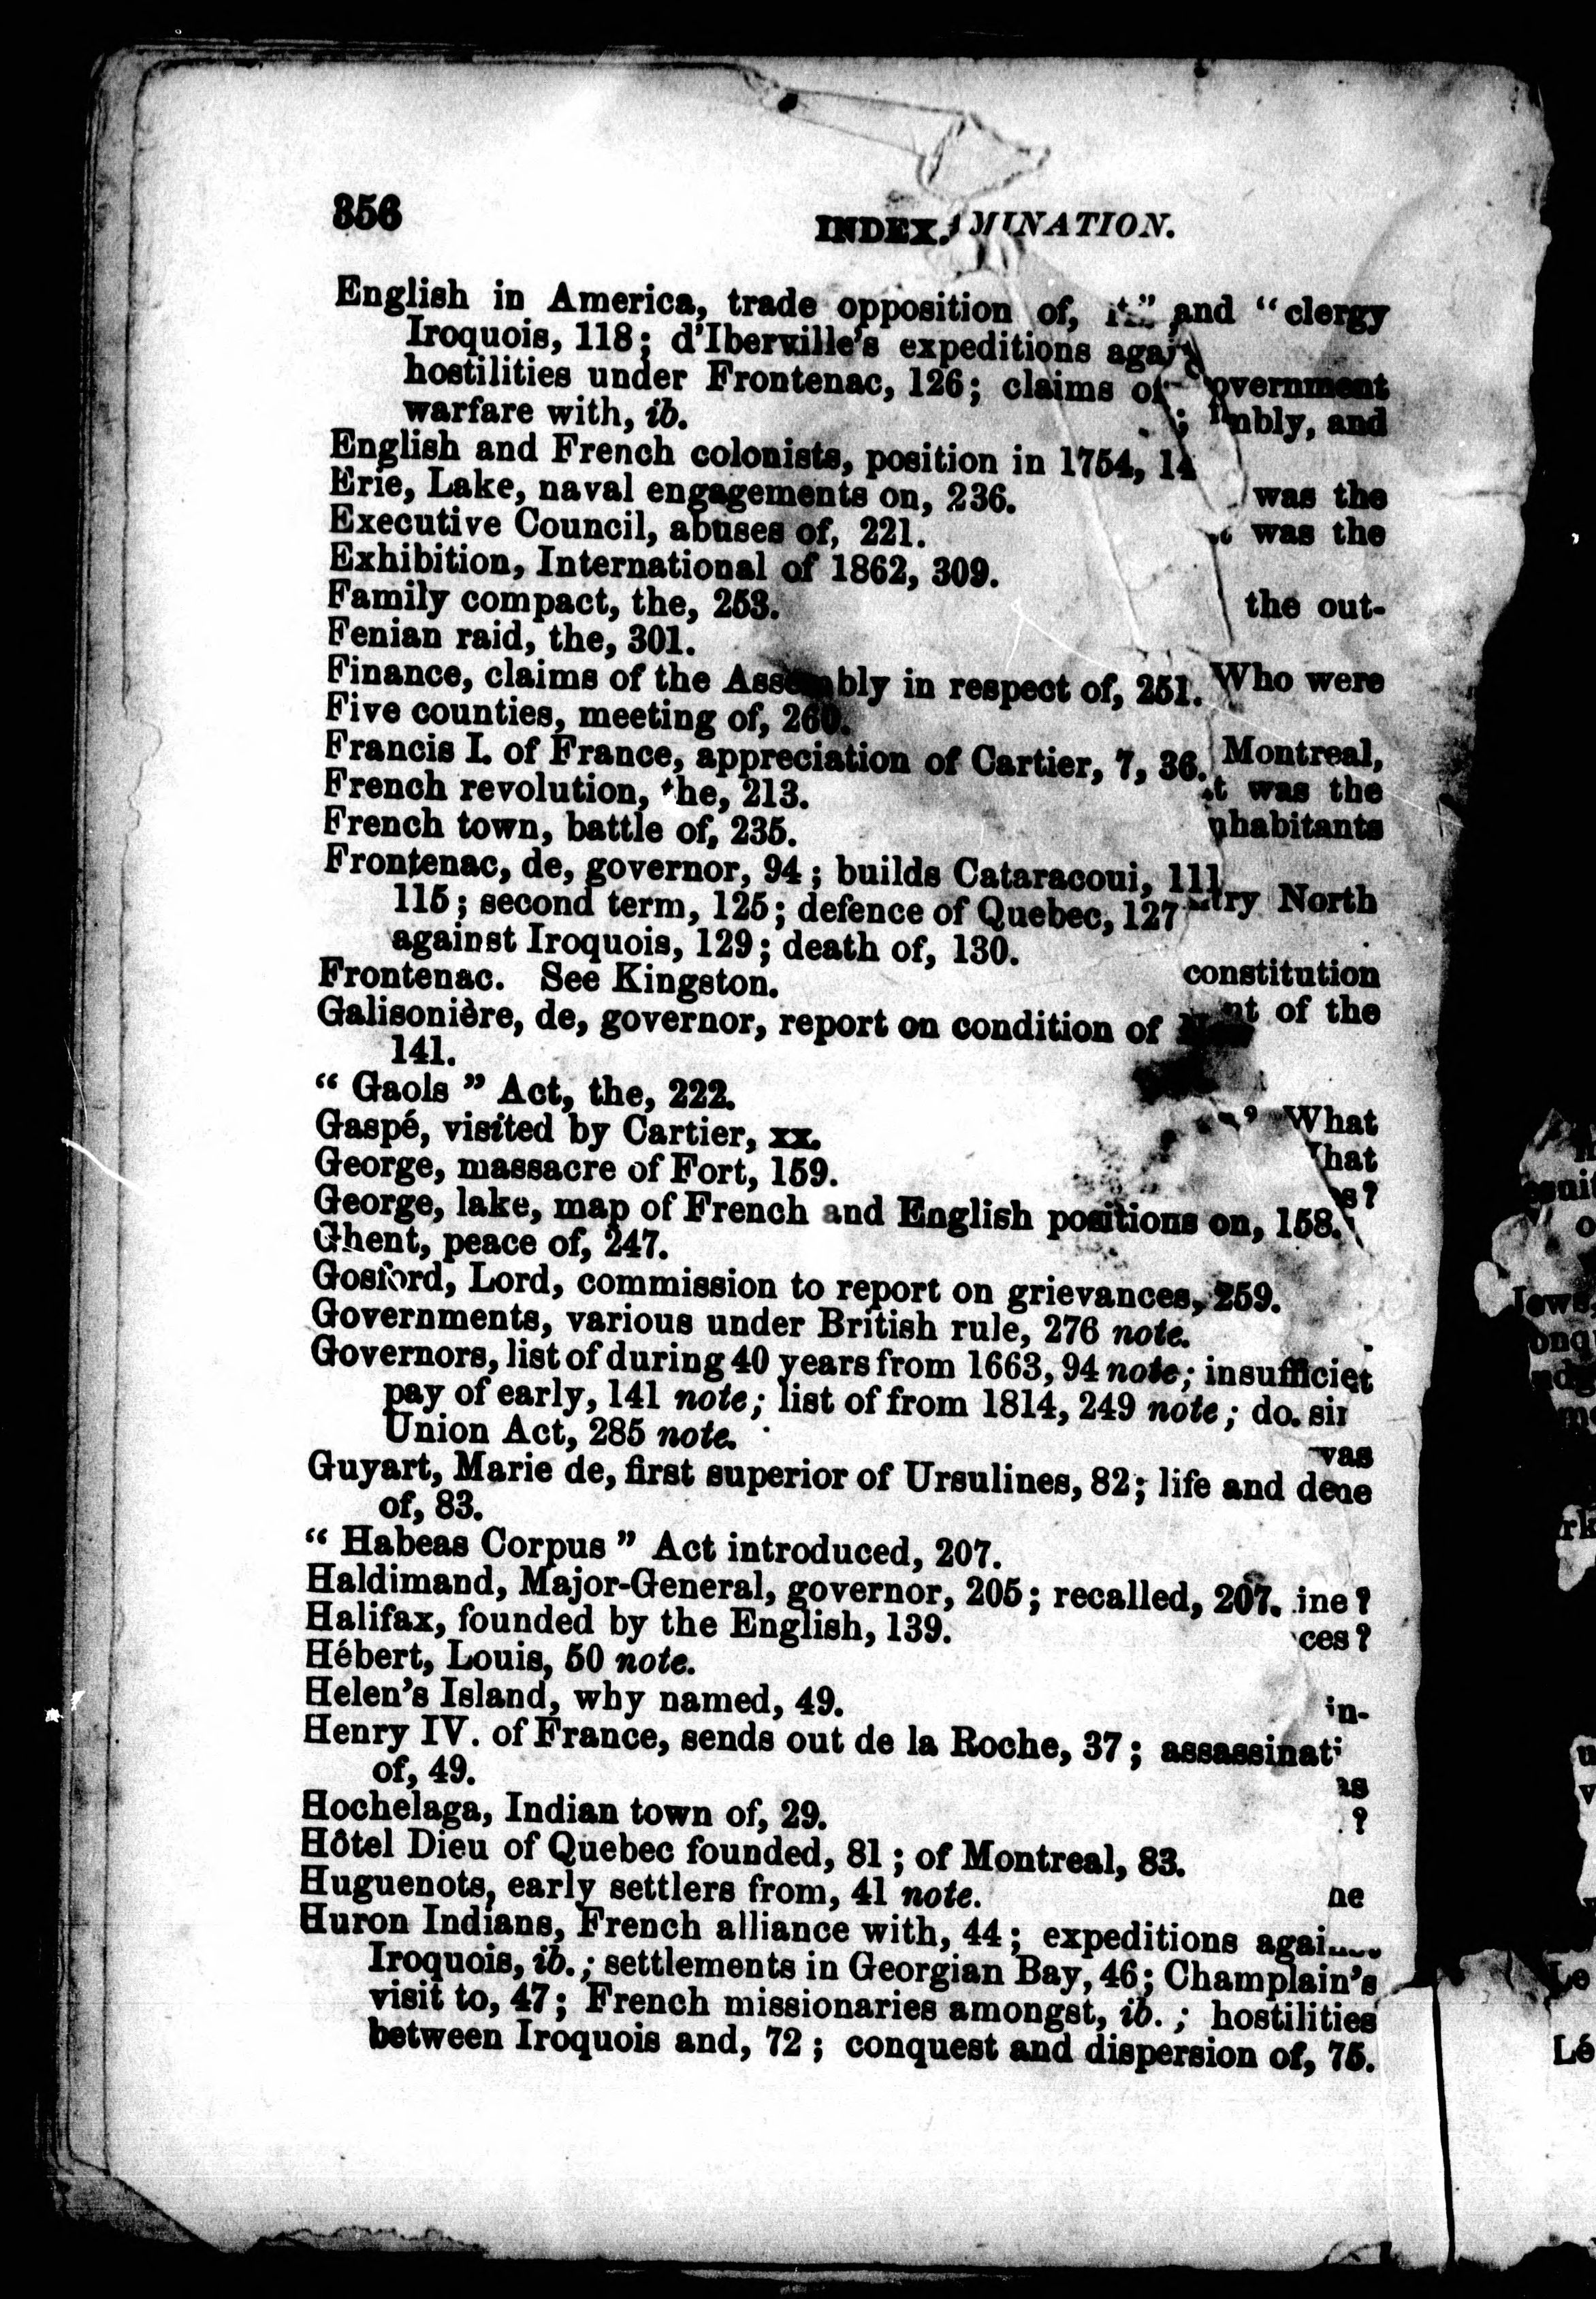 356
INDEX. MINATION.
English in America, trade opposition of, and "clergy
Iroquois, 118; d'Iberville's expeditions
hostilities under Frontenac, 126; claims of overnment
warfare with, ib. mbly, and
English and French colonists, position in 1754,
Erie, Lake, naval engagements on, 236. was the
Executive Council, abuses of, 221. was the
Exhibition, International of 1862, 309.
Family compact, the, 253. the out-
Fenian raid, the, 301.
Finance, claims of the Assembly in respect of, 251. Who were
Five counties, meeting of, 260.
Francis I. of France, appreciation of Cartier, 7, 36. Montreal,
French revolution, the, 213. t was the
French town, battle of, 235. nhabitants
Frontenac, de, governor, 94; builds Cataracoui, 111
115; second term, 125; defence of Quebec, 127 try North
against Iroquois, 129; death of, 130.
Frontenac. See Kingston. constitution
Galisonière, de, governor, report on condition of nt of the
141.
" Gaols " Act, the, 222.
Gaspé, visited by Cartier, xx. What
George, massacre of Fort, 159. hat
George, lake, map of French and English positions on, 158. s?
Ghent, peace of, 247.
Gosford, Lord, commission to report on grievances, 259.
Governments, various under British rule, 276 note.
Governors, list of during 40 years from 1663, 94 note; insufficiet
pay of early, 141 note; list of from 1814, 249 note; do. sin
Union Act, 285 note.
was
Guyart, Marie de, first superior of Ursulines, 82; life and
of, 83.
" Habeas Corpus " Act introduced, 207.
Haldimand, Major-General, governor, 205; recalled, 207. ine?
Halifax, founded by the English, 139. ces?
Hébert, Louis, 50 note.
Helen's Island, why named, 49. in-
Henry IV. of France, sends out de la Roche, 37; assassinati
of, 49. as
Hochelaga, Indian town of, 29. ?
Hôtel Dieu of Quebec founded, 81; of Montreal, 83.
Huguenots, early settlers from, 41 note. ne
Huron Indians, French alliance with, 44; expeditions
Iroquois, ib.; settlements in Georgian Bay, 46; Champlain's
visit to, 47; French missionaries amongst, ib.; hostilities
between Iroquois and, 72; conquest and dispersion of, 75.